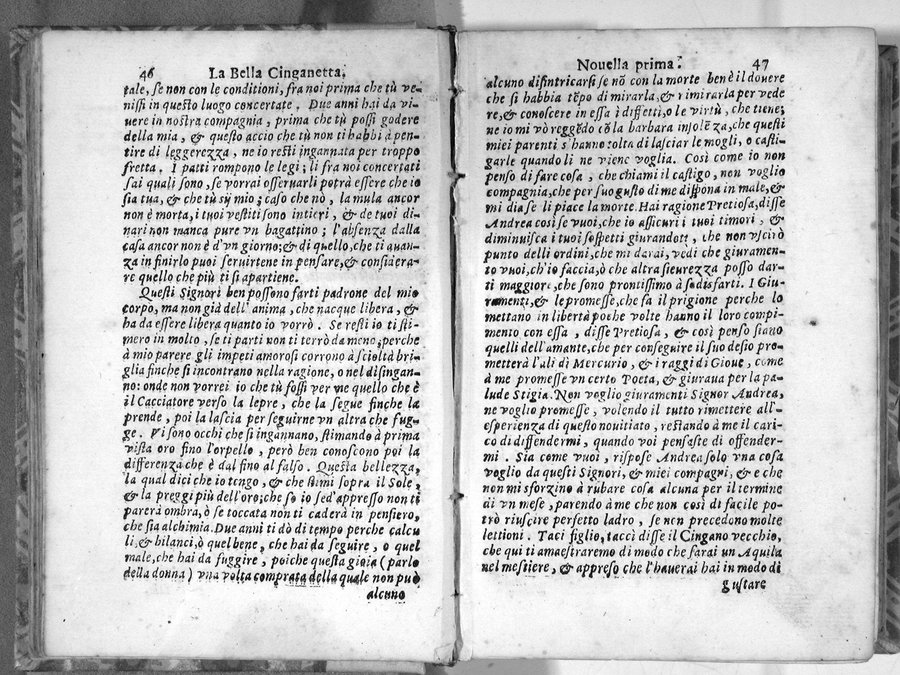 46 La Bella Cinganetta.
tale, se non con le conditioni, fra noi prima che tù ve-
nissi in questo luogo concertate. Due anni hai da vi-
uere in nostra compagnia, prima che tù possi godere
della mia, & questo accio che tù non ti habbi à pen-
tire di leggerezza, ne io resti ingannata per troppo
fretta. I patti rompono le legi; li fra noi concertati
sai quali sono, se vorrai osseruarli potrà essere che io
sia tua, & che tù sÿ mio; caso che nò, la mula ancor
non è morta, i tuoi vestiti sono intieri, & de tuoi di-
nari non manca pure vn bagattino; l'absenza dalla
casa ancor non è d'vn giorno; & di quello, che ti auan-
za in finirlo puoi seruirtene in pensare, & considera-
re quello che più ti si apartiene.
Questi Signori ben possono farti padrone del mio
corpo, ma non già dell'anima, che nacque libera, &
ha da essere libera quanto io vorrò. Se resti io ti sti-
merò in molto, se ti parti non ti terrò da meno; perche
à mio parere gli impeti amorosi corrono à sciolta bri-
glia finche si incontrano nella ragione, o nel disingan-
no: onde non vorrei io che tù fossi ver me quello che è
il Cacciatore verso la lepre, che la segue finche la
prende, poi la lascia per seguirne vn altra che fug-
ge. Vi sono occhi che si ingannano, stimando à prima
vista oro fino l'orpello, però ben conoscono poi la
differenza che è dal fino al falso. Questa bellezza,
la qual dici che io tengo, & che stimi sopra il Sole,
& la preggi più dell'oro; che so io se d'appresso non ti
parerà ombra, ò se toccata non ti caderà in pensiero,
che sia alchimia. Due anni ti dò di tempo perche calcu
li, & bilanci, ò quel bene, che hai da seguire, o quel
male, che hai da fuggire, poiche questa gioia (parlo
della donna) vna volta comprata della quale non può
alcuno
Nouella prima. 47
alcuno disintricarsi se nõ con la morte ben è il douere
che si habbia tẽpo di mirarla, & rimirarla per vede
re, & conoscere in essa i diffetti, o le virtù, che tiene;
ne io mi vò reggẽdo cõ la barbara insolẽza, che questi
miei parenti s'hanno tolta di lasciar le mogli, o casti-
garle quando li ne viene voglia. Così come io non
penso di fare cosa, che chiami il castigo, non voglio
compagnia, che per suo gusto di me dispona in male, &
mi dia se li piace la morte. Hai ragione Pretiosa, disse
Andrea così se vuoi, che io assicuri i tuoi timori, &
diminuisca i tuoi sospetti giurandoti, che non vscirò
punto delli ordini, che mi darai, vedi che giuramen-
to vuoi, ch'io faccia, ò che altra sicurezza posso dar-
ti maggiore, che sono prontissimo à sodisfarti. I Giu-
ramenti, & le promesse, che fa il prigione perche lo
mettano in libertà poche volte hanno il loro compi-
mento con essa, disse Pretiosa, & così penso siano
quelli dell'amante, che per conseguire il suo desio pro-
metterà l'ali di Mercurio, e i raggi di Gioue, come
à me promesse vn certo Poeta, & giuraua per la pa-
lude Stigia. Non voglio giuramenti Signor Andrea,
ne voglio promesse, volendo il tutto rimettere all'-
esperienza di questo nouitiato, restando à me il cari-
co di diffendermi, quando voi pensaste di offender-
mi. Sia come vuoi, rispose Andrea solo vna cosa
voglio da questi Signori, & miei compagni, & è che
non mi sforzino à rubare cosa alcuna per il termine
di vn mese, parendo à me che non così di facile po-
trò riuscire perfetto ladro, se non precedono molte
lettioni. Taci figlio, tacci disse il Cingano vecchio,
che qui ti amaestraremo di modo che farai un Aquila
nel mestiere, & appreso che l'hauerai hai in modo di
gustare